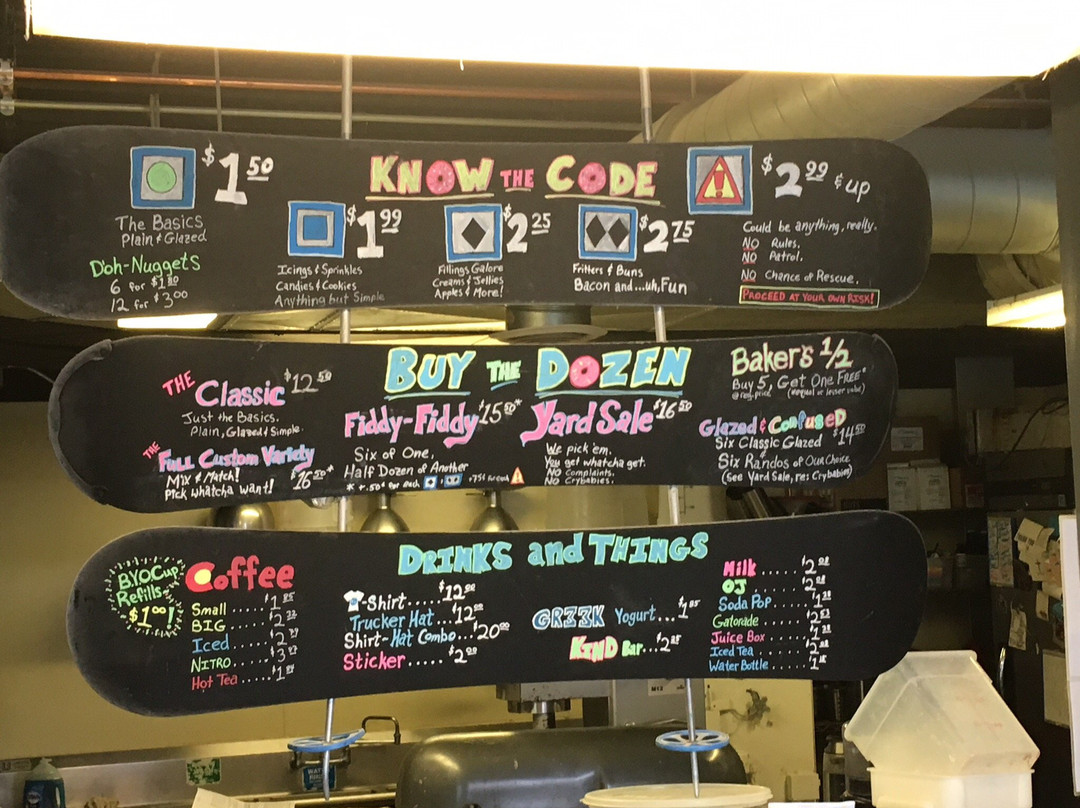 KNOW THE CODE
$1.50
The Basics
Plain & Glazed
D'oh-Nuggets
6 for
12 for $3.00
$1.99
Icings & Sprinkles
Candies & Cookies
Anything but Simple
$2.25
Fillings Galore
Creams & Jellies
Apples & More!
$2.75
Fritters & Buns
Bacon and...uh, Fun
$2.99 & up
Could be anything, really.
NO Rules.
NO Patrol.
NO Chance of Rescue.
PROCEED AT YOUR OWN RISK!
BUY THE DOZEN
THE Classic $12.50
Just the Basics.
Plain, Glazed & Simple.
THE FULL Custom Variety
Mix & Match! $16.50*
Pick whatcha want!
Fiddy-Fiddy $15.50*
Six of One,
Half Dozen of Another
* +.50¢ for each
Yard Sale $16.50
We pick 'em.
You get whatcha get.
NO Complaints.
NO Crybabies.
Baker's 1/2
Buy 5, Get One FREE*
@ reg. price (*equal or lesser value)
Glazed & Confused
Six Classic Glazed $14.50
&
Six Randos of Our Choice
(See Yard Sale, re: Crybabies)
DRINKS and THINGS
BYOCup
Refills
$1.00!
Coffee
Small
BIG
Iced
NITRO
Hot Tea
-Shirt.....$12.00
Trucker Hat...$12.00
Shirt-Hat Combo...$20.00
Sticker.....$2.00
GR33K Yogurt...
KIND Bar...
Milk
OJ
Soda Pop
Gatorade
Juice Box
Iced Tea
Water Bottle